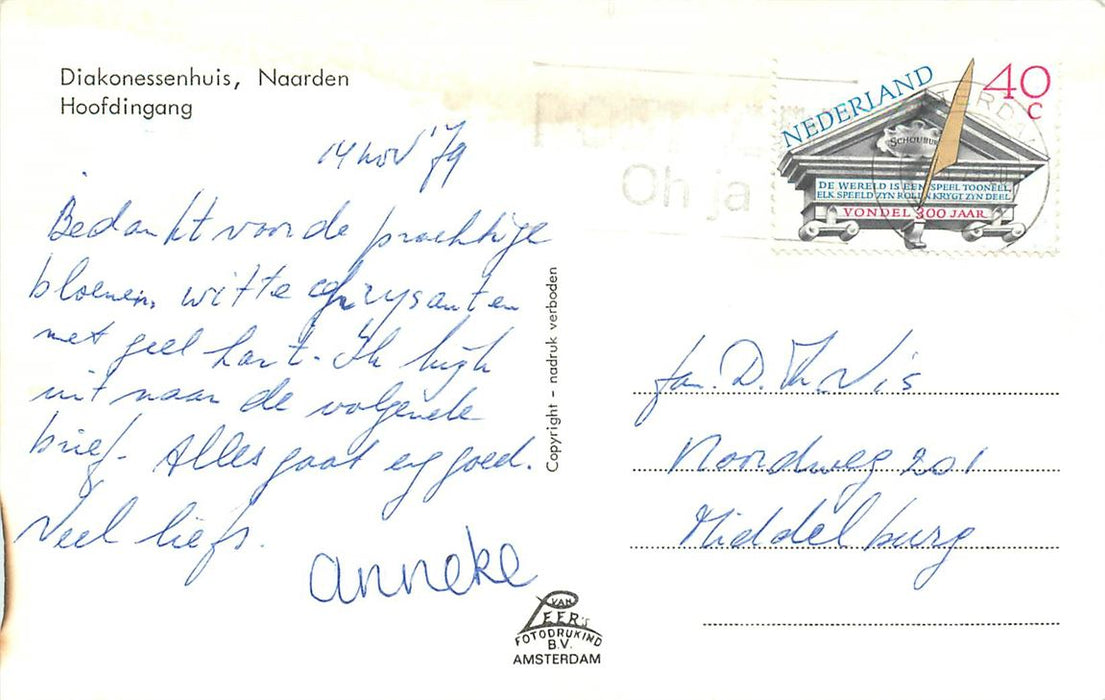 Diakonessenhuis, Naarden
Hoofdingang
14 nov '79
Bedankt voor de prachtige
bloemen, witte chrysanten
met geel hart. Ik kijk
uit naar de volgende
brief. Alles gaat erg goed.
Veel liefs.
anneke
Copyright – nadruk verboden
VAN
LEER's
FOTODRUKIND
B.V.
AMSTERDAM
Oh ja
NEDERLAND
40
c
SCHOUBURG
DE WERELD IS EEN SPEEL TOONEEL
ELK SPEELD ZYN ROL EN KRYGT ZYN DEEL
VONDEL 300 JAAR
Fam. D. Th. Vis
Noordweg 201
Middelburg